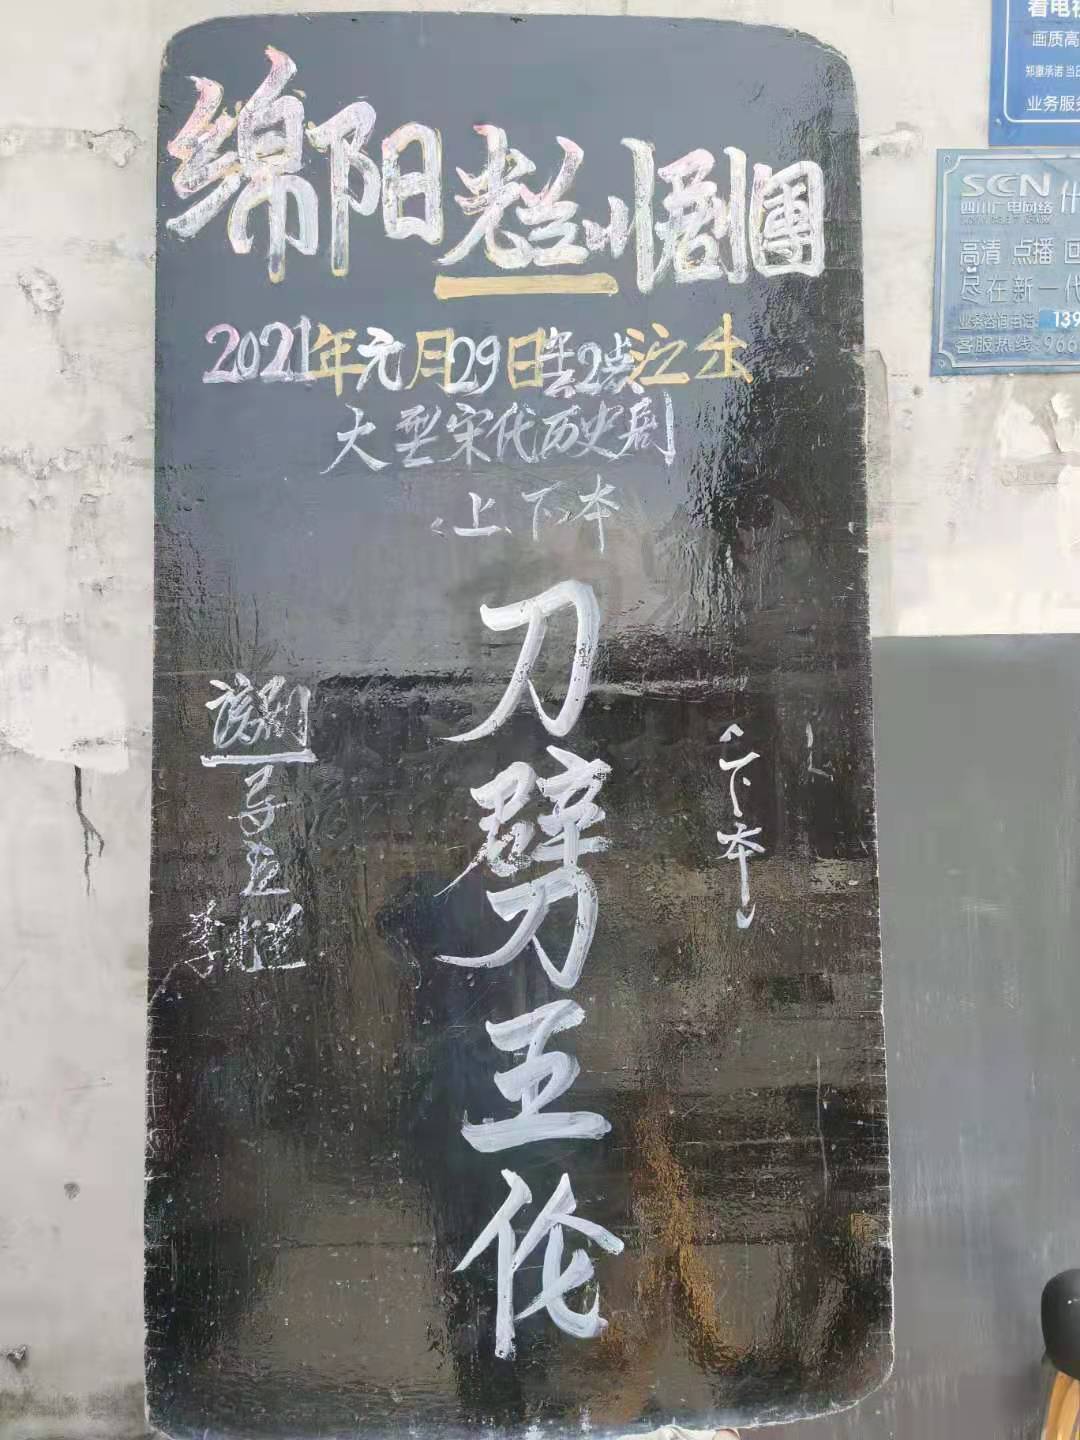 绵阳老兰川剧團
2021年元月29日至2点演出
大型宋代历史剧
〈上、下〉本
刀劈五伦
〈下本〉
该剧
导演
看电视
画质高
郑重承诺 当日
业务服务
SCN
四川广电网络
高清 点播 回
尽在新一代
业务咨询电话: 139
客服热线: 966